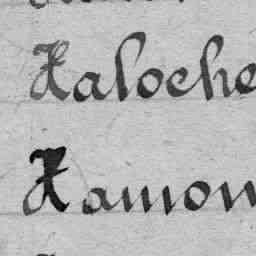 Haloche
Hamon